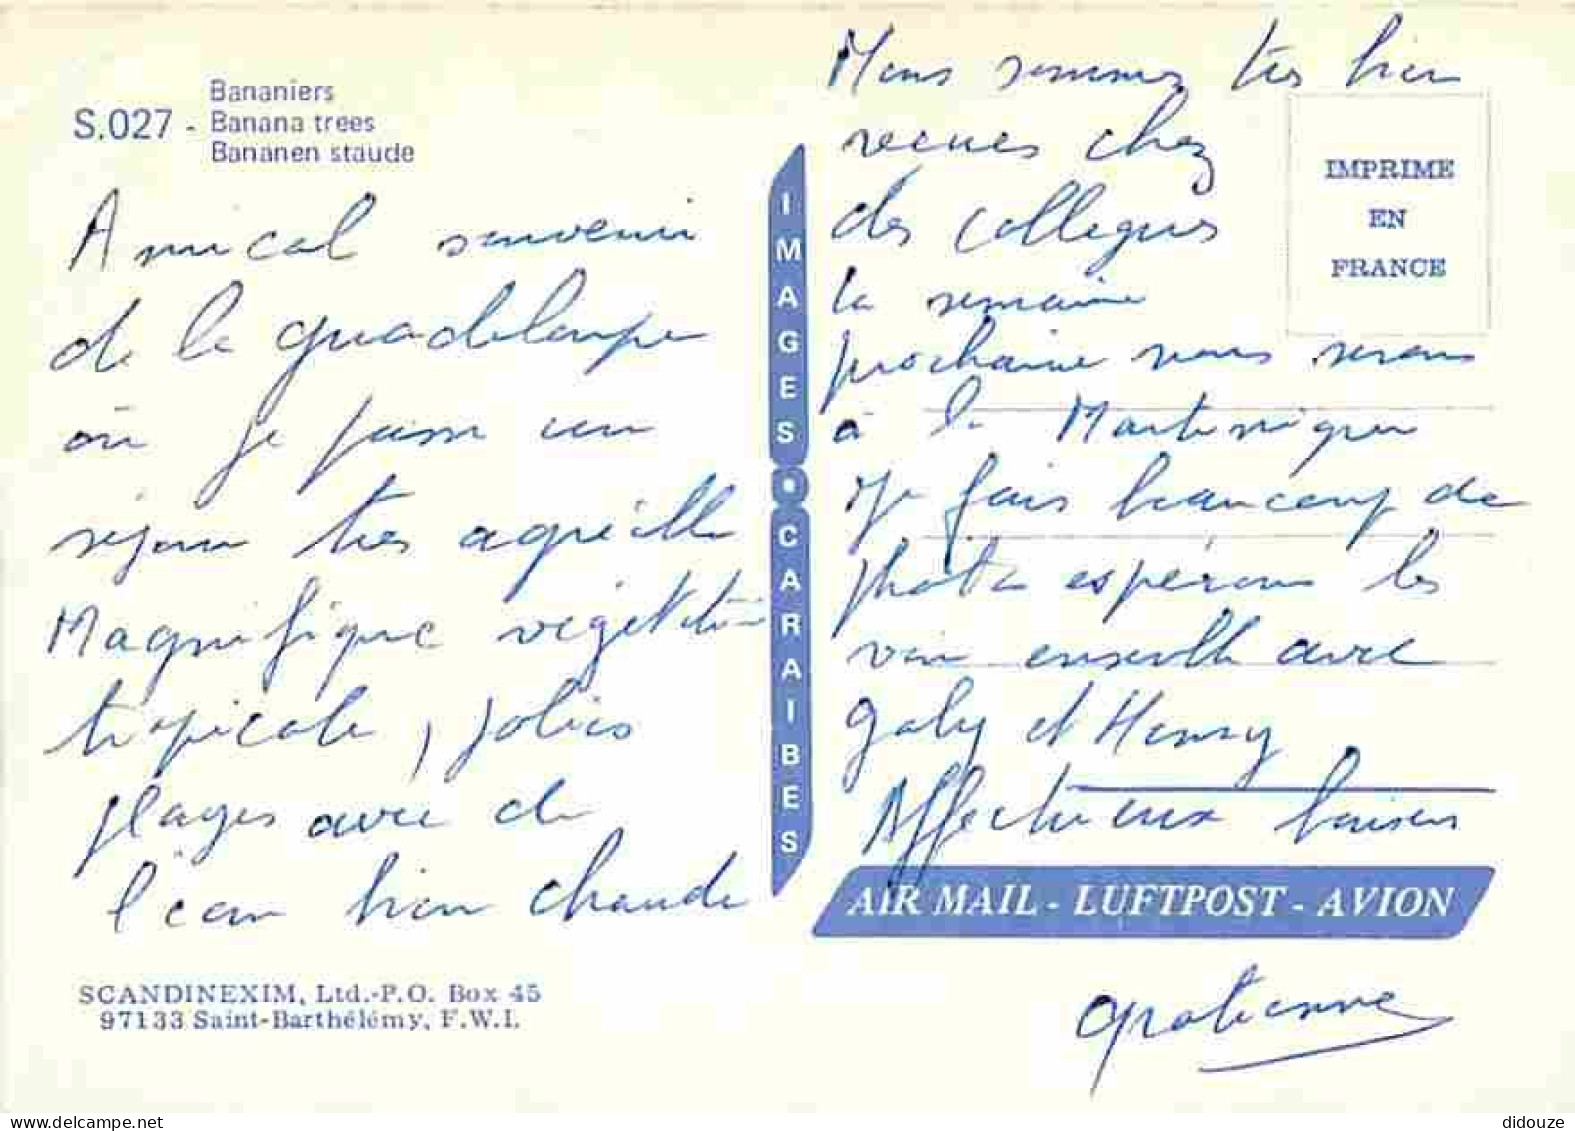 S.027 - Bananiers
Banana trees
Bananen staude
Amical souvenir
de la guadeloupe
où je passe un
séjour très agréable
Magnifique végétation
tropicale, jolies
plages avec de
l'eau bien chaude
SCANDINEXIM, Ltd.-P.O. Box 45
97133 Saint-Barthélémy, F.W.I.
IMAGES • CARAIBES
Nous sommes très bien
recues chez
des collegues
la semaine
prochaine nous serons
à la Martinique
Je fais beaucoup de
photos espérons les
voir ensemble avec
Gaby et Henry
Affectueux baisers
IMPRIME
EN
FRANCE
AIR MAIL - LUFTPOST - AVION
gratienne
delcampe.net
didouze